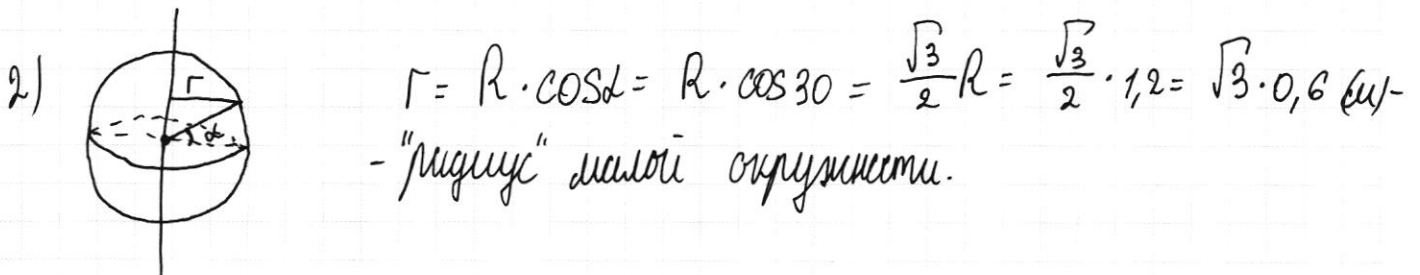 2)
r
α
r = R · cosα = R · cos30 = √3/2 R = √3/2 · 1,2 = √3 · 0,6 (м) -
- "радиус" малой окружности.